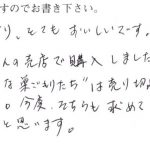 すのでお書き下さい。
り、とても おいしいです。
んの売店で購入しました
な巣ごもりたち”は売り切れ
。今度、そちらも求めて
と思います。